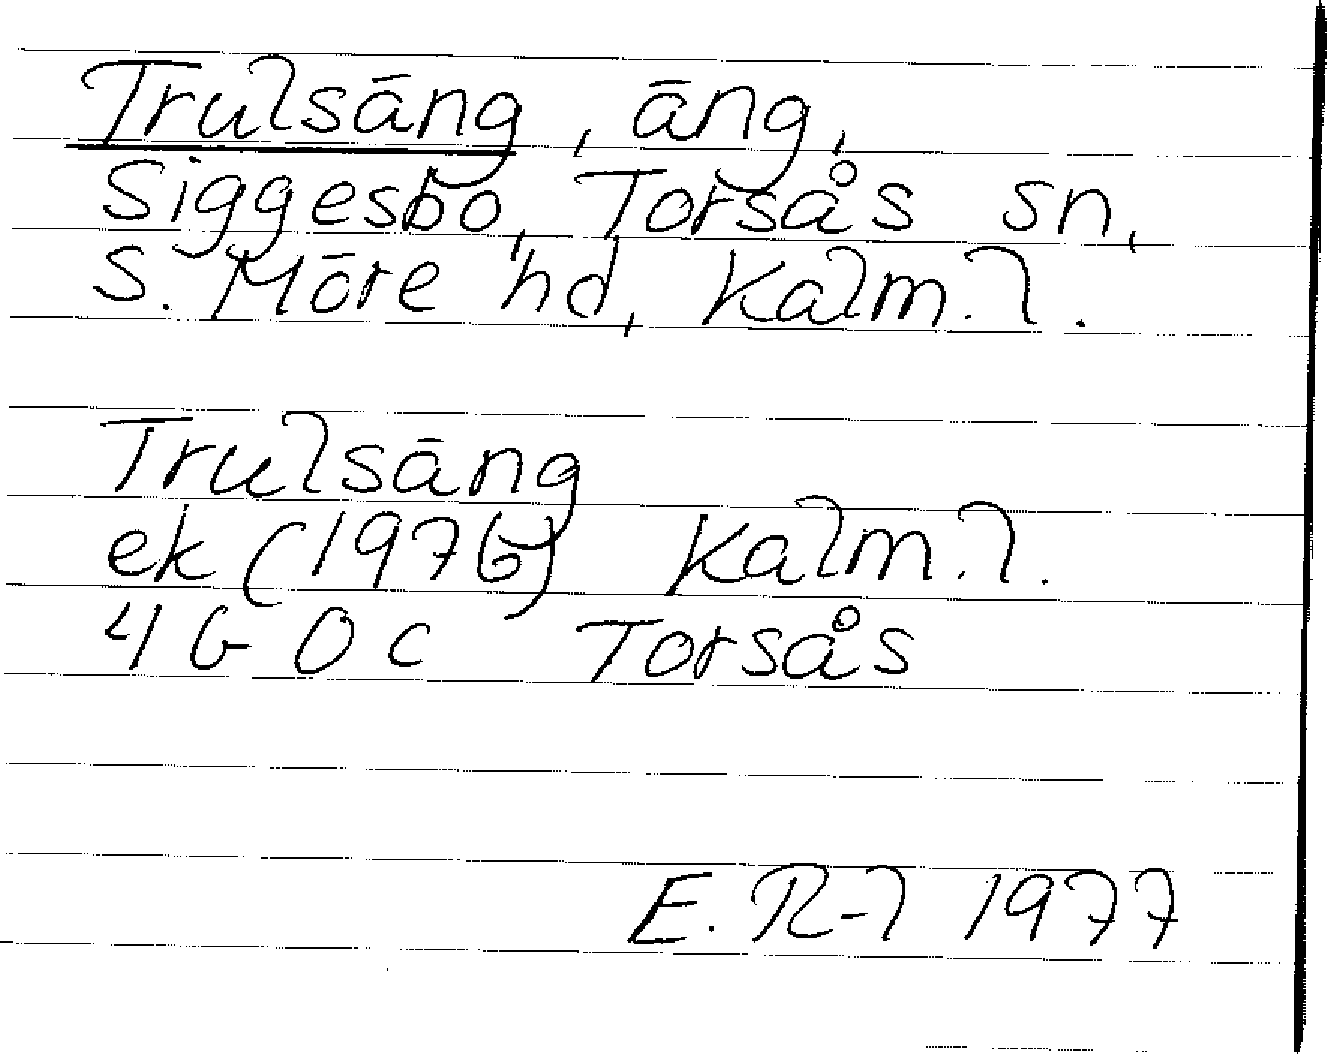 Trulsäng, äng,
Siggesbo, Torsås sn,
S. Möre hd, Kalm.l.
Trulsäng
ek (1976) Kalm.l.
4G 0c Torsås
E. R-l 1977